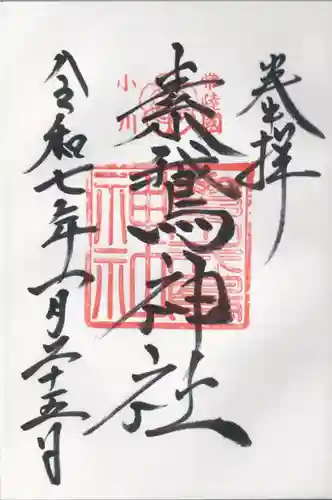 奉拝
常陸國
素鵞神社
小川
令和七年一月二十五日